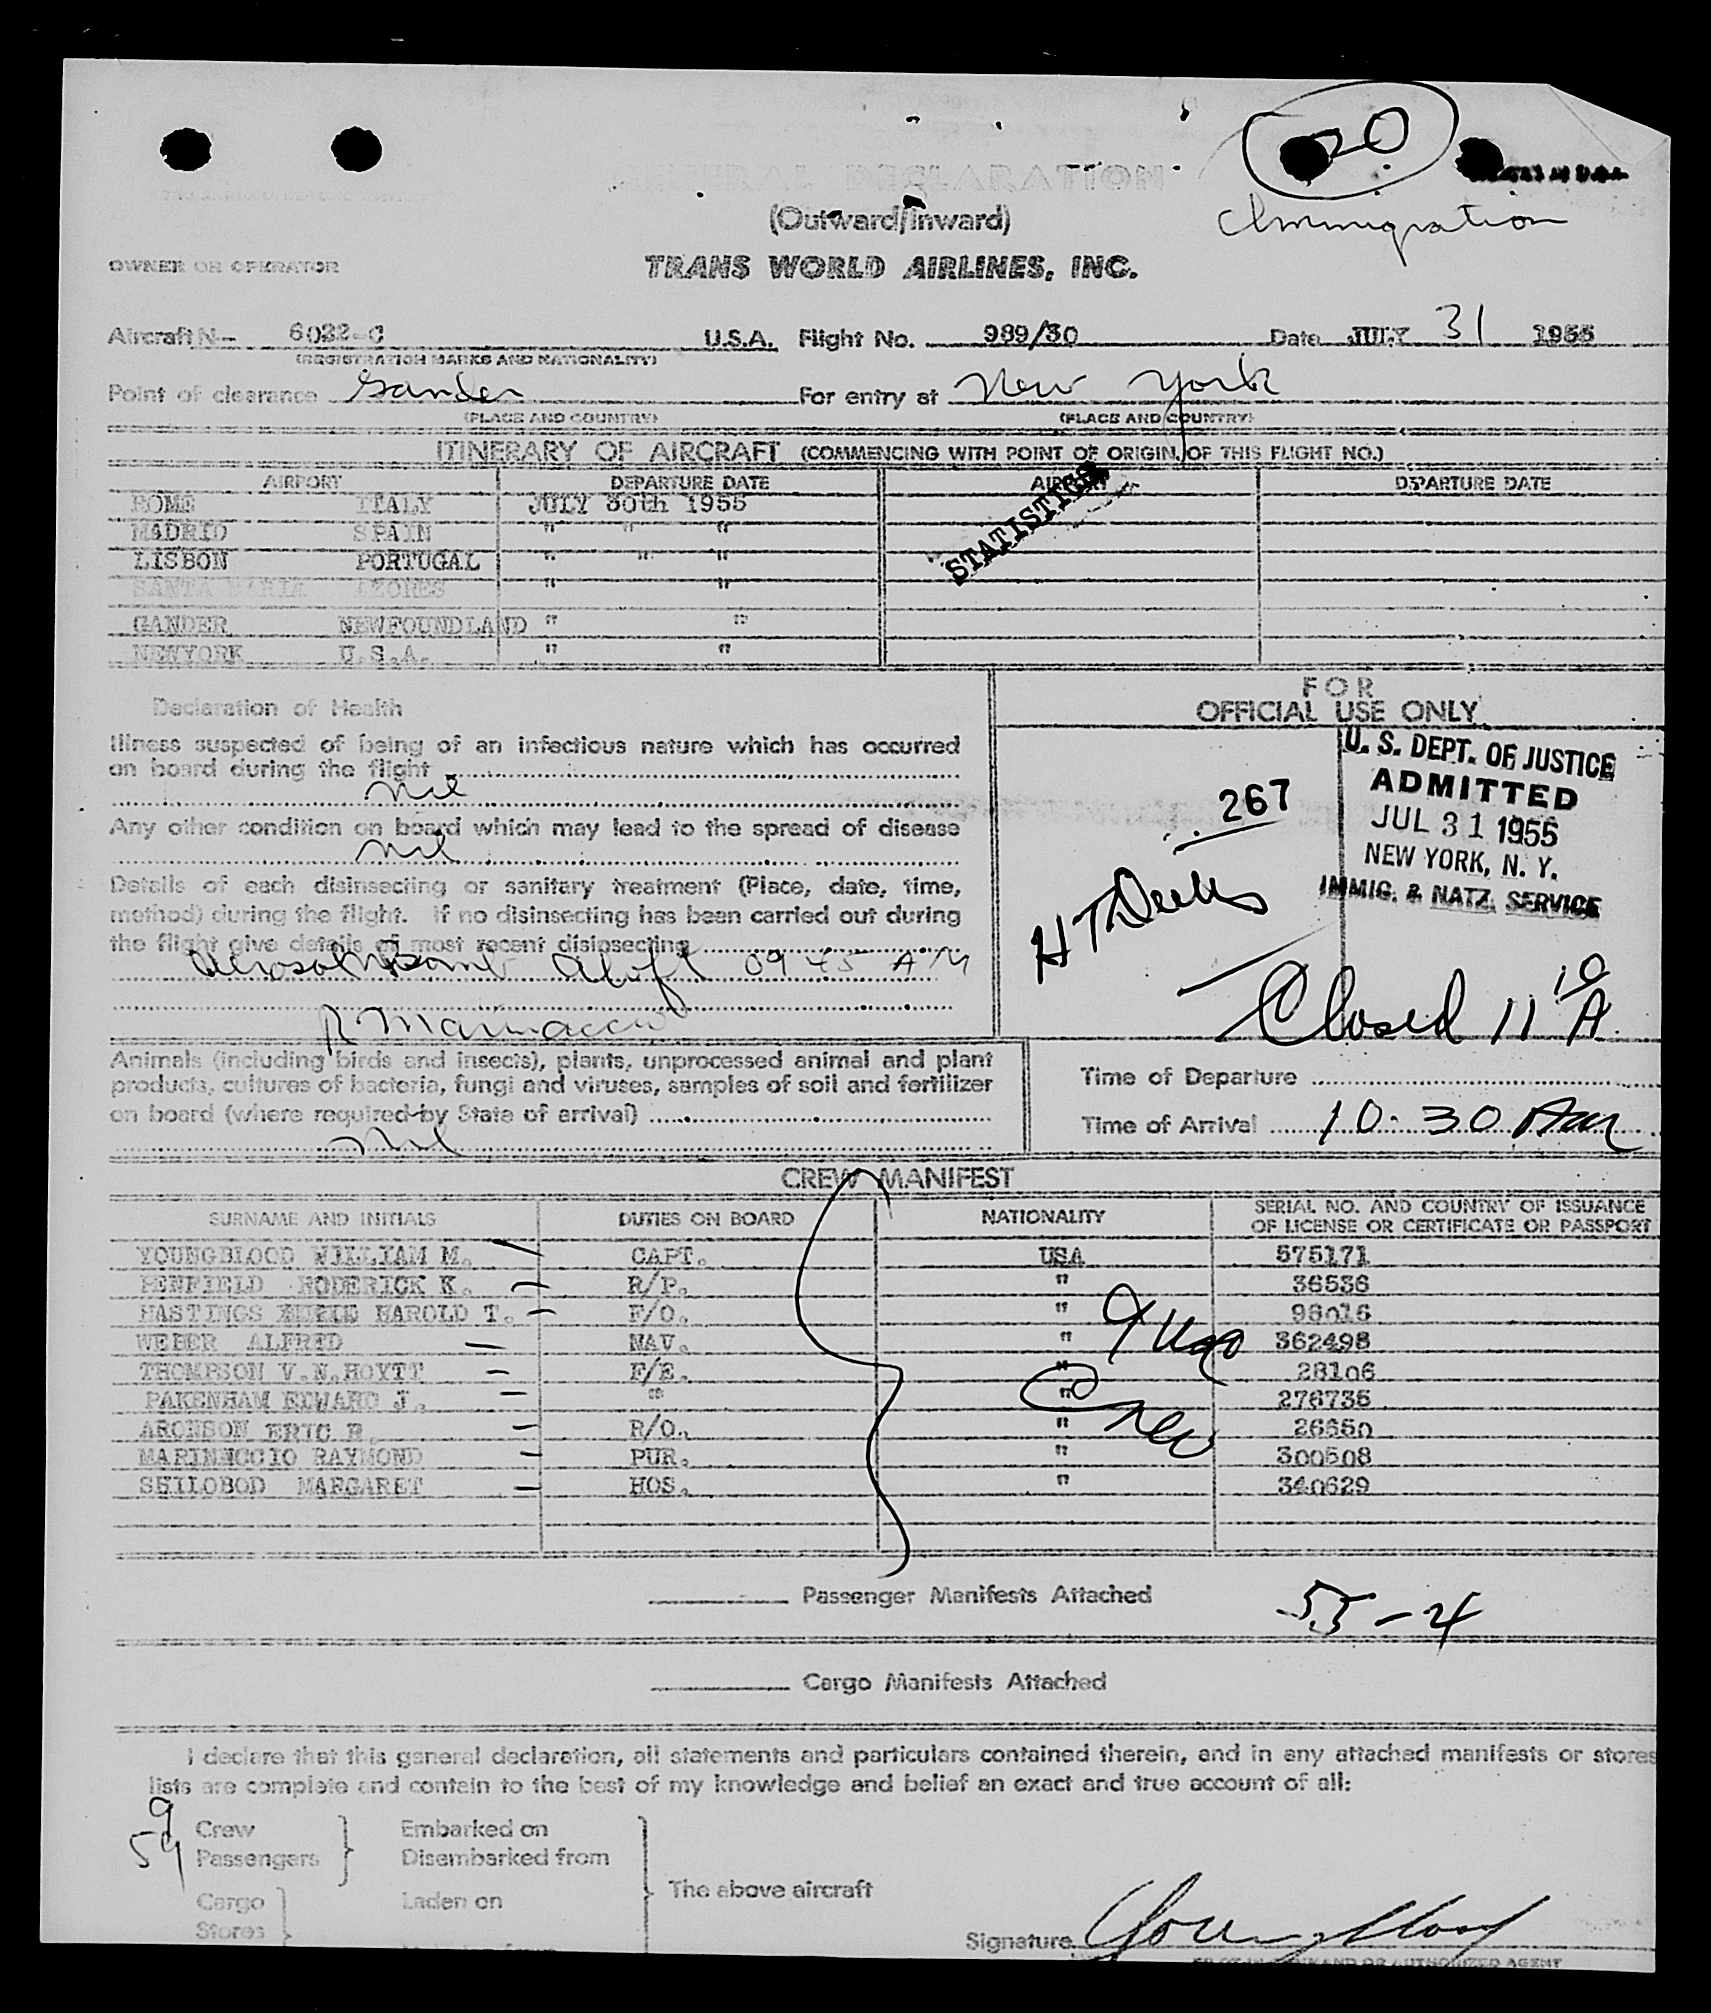 20
GENERAL DECLARATION
(Outward/Inward)
Immigration
OWNER OR OPERATOR
TRANS WORLD AIRLINES, INC.
Aircraft N- 6022-C U.S.A. Flight No. 989/30 Date JULY 31 1955
(REGISTRATION MARKS AND NATIONALITY)
Point of clearance Gander For entry at New York
(PLACE AND COUNTRY) (PLACE AND COUNTRY)
ITINERARY OF AIRCRAFT (COMMENCING WITH POINT OF ORIGIN, OF THIS FLIGHT NO.)
AIRPORT DEPARTURE DATE AIRPORT DEPARTURE DATE
ROME ITALY JULY 30th 1955
MADRID SPAIN " " "
LISBON PORTUGAL " " "
SANTA MARIA AZORES " "
GANDER NEWFOUNDLAND " "
NEWYORK U.S.A. " "
STATISTICS
Declaration of Health
Illness suspected of being of an infectious nature which has occurred
on board during the flight
nil
Any other condition on board which may lead to the spread of disease
nil
Details of each disinsecting or sanitary treatment (Place, date, time,
method) during the flight. If no disinsecting has been carried out during
the flight give details of most recent disinsecting
Aerosol Bomb Aloft 0945 AM
R Marinaccio
FOR
OFFICIAL USE ONLY
U. S. DEPT. OF JUSTICE
ADMITTED
JUL 31 1955
NEW YORK, N. Y.
IMMIG. & NATZ. SERVICE
267
Closed 11 10 A
Animals (including birds and insects), plants, unprocessed animal and plant
products, cultures of bacteria, fungi and viruses, samples of soil and fertilizer
on board (where required by State of arrival)
nil
Time of Departure
Time of Arrival 10.30 Am
CREW MANIFEST
SURNAME AND INITIALS DUTIES ON BOARD NATIONALITY SERIAL NO. AND COUNTRY OF ISSUANCE
OF LICENSE OR CERTIFICATE OR PASSPORT
YOUNGBLOOD WILLIAM M. CAPT. USA 575171
PENFIELD RODERICK K. R/P. " 36536
HASTINGS HAROLD T. F/O. " 98016
WEBER ALFRED NAV. " 362498
THOMPSON V.N.HOYTT F/E. " 28106
PAKENHAM EDWARD J. " " 276735
ARONSON ERIC R. R/O. " 26650
MARINACCIO RAYMOND PUR. " 300508
SHILOBOD MARGARET HOS. " 340629
Crew
Passenger Manifests Attached 55-4
Cargo Manifests Attached
I declare that this general declaration, all statements and particulars contained therein, and in any attached manifests or stores
lists are complete and contain to the best of my knowledge and belief an exact and true account of all:
9 Crew Embarked on
59 Passengers Disembarked from
The above aircraft
Cargo Laden on
Stores
Signature Youngblood
PILOT IN COMMAND OR AUTHORIZED AGENT